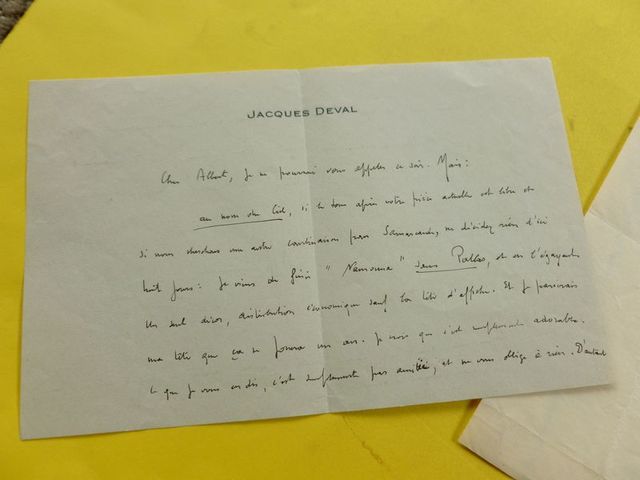 JACQUES DEVAL
Cher Albert, je ne pourrai vous appeler ce soir. Mais :
au nom du Ciel, si le tour après votre pièce actuelle est libre et
si nous cherchons une autre combinaison pour Samarcande, ne décidez rien d'ici
huit jours : je viens de finir "Namouna" sans Pallas, et en l'égayant.
Un seul décor, distribution économique sauf la tête d'affiche. Et je parierais
ma tête que ça se jouera un an. Je crois que c'est adorable.
Ce que je vous en dis, c'est par amitié, et ne vous oblige à rien. D'autant